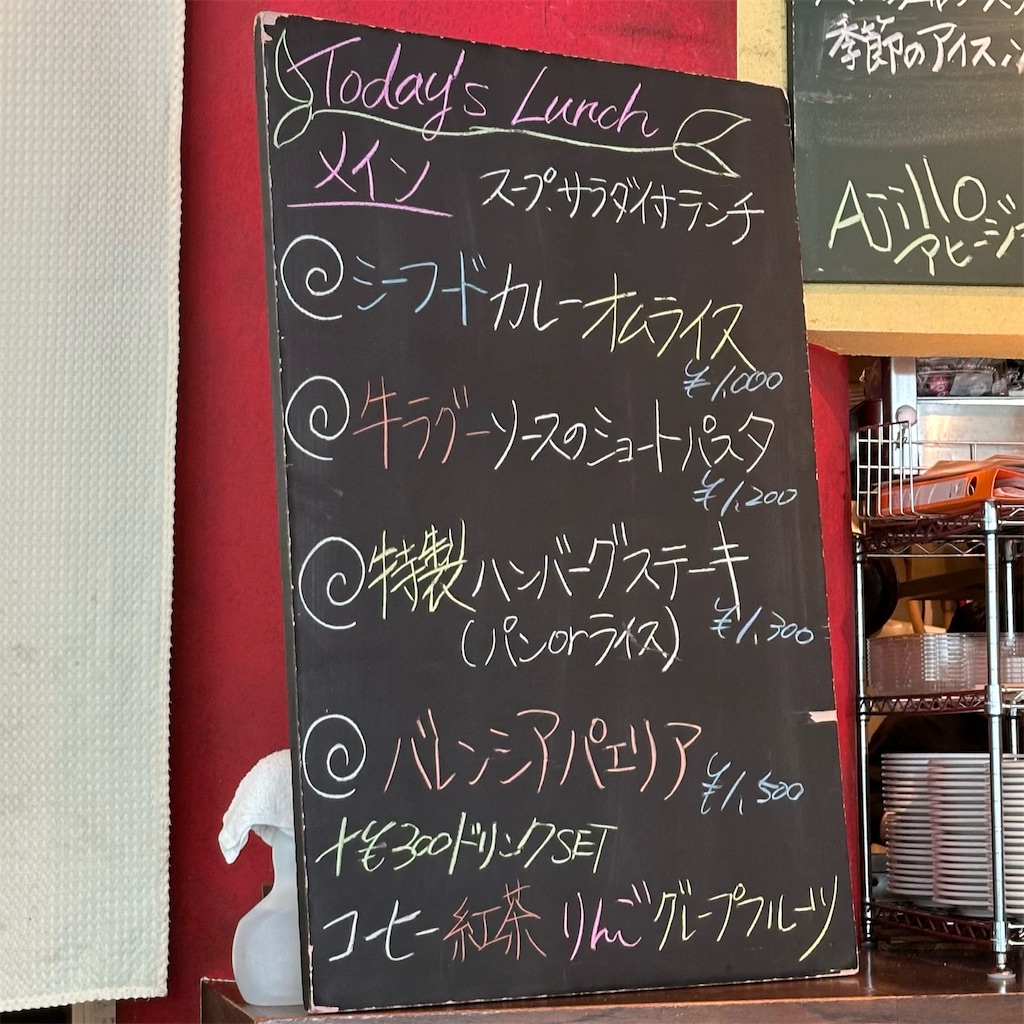 Today's Lunch
メイン
スープ.サラダ付ランチ
シーフードカレーオムライス
¥1,000
牛ラグーソースのショートパスタ
¥1,200
特製ハンバーグステーキ
(パンorライス)
¥1,300
バレンシアパエリア
¥1,500
+¥300ドリンクSET
コーヒー 紅茶 りんご グレープフルーツ
季節のアイス
Ajillo
アヒージ